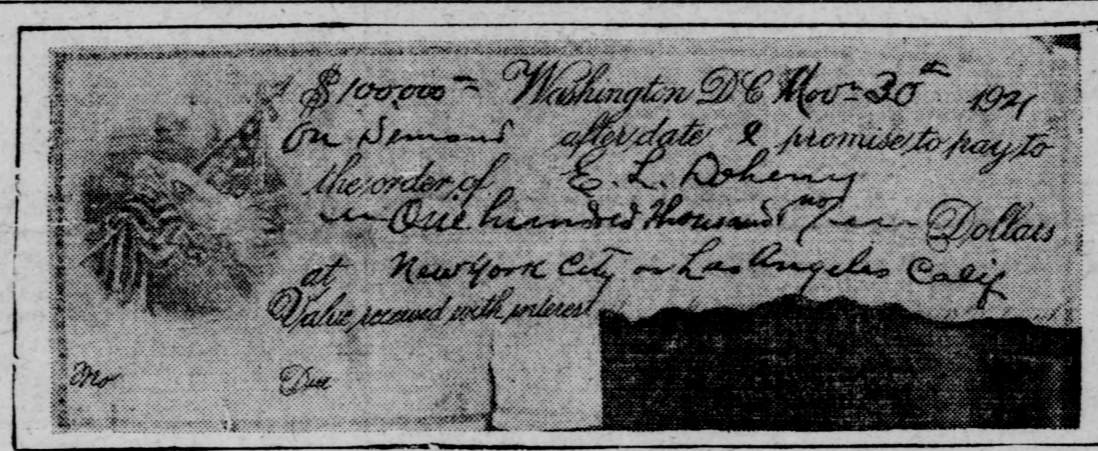 $100,000 = Washington D C Nov = 30th 1921
On Demand after date I promise to pay to
the order of E. L. Doheny
One hundred thousand no/ Dollars
at New York City or Los Angeles Calif
Value received with interest
No Due